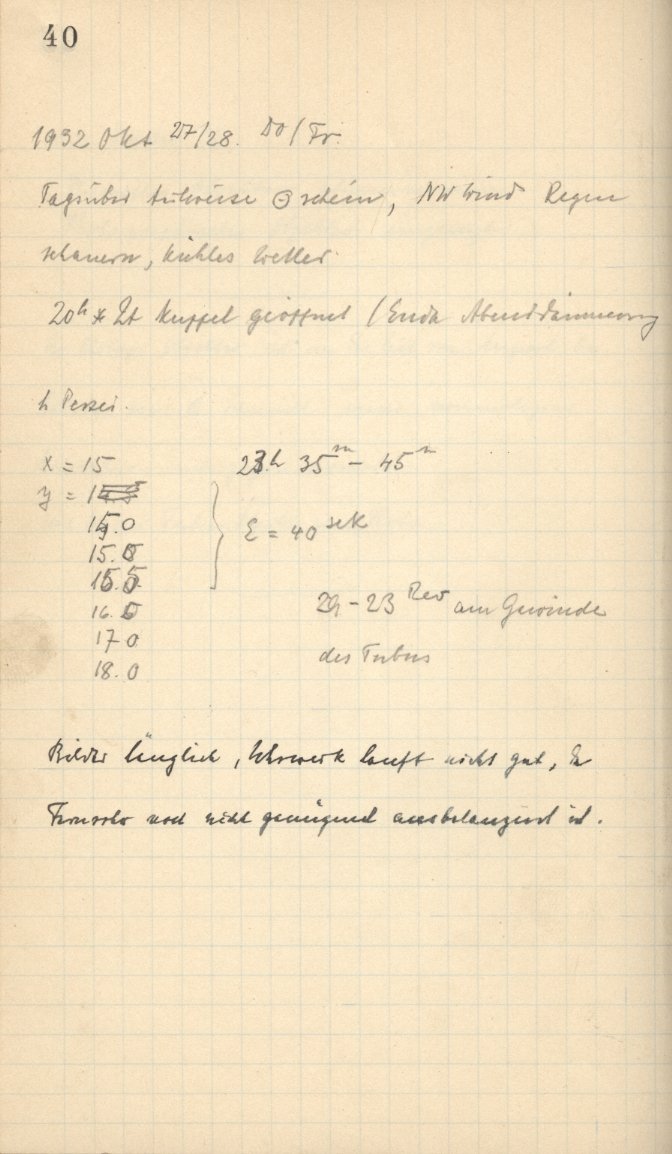 40
1932 Okt 27/28. Do/Fr.
Tagsüber teilweise ⊙schein, NW Wind Regen
schauern, kühles Wetter.
20h * Zt Kuppel geöffnet (Ende Abenddämmerung
h Persei.
x = 15 23h 35m - 45m
y =
15.0
15.5 E = 40 sek
16.5
17 0
18.0
23 Rev am Gewinde
des Tubus
Bilder länglich, Uhrwerk lauft nicht gut, da
Fernrohr noch nicht genügend ausbalanziert ist.